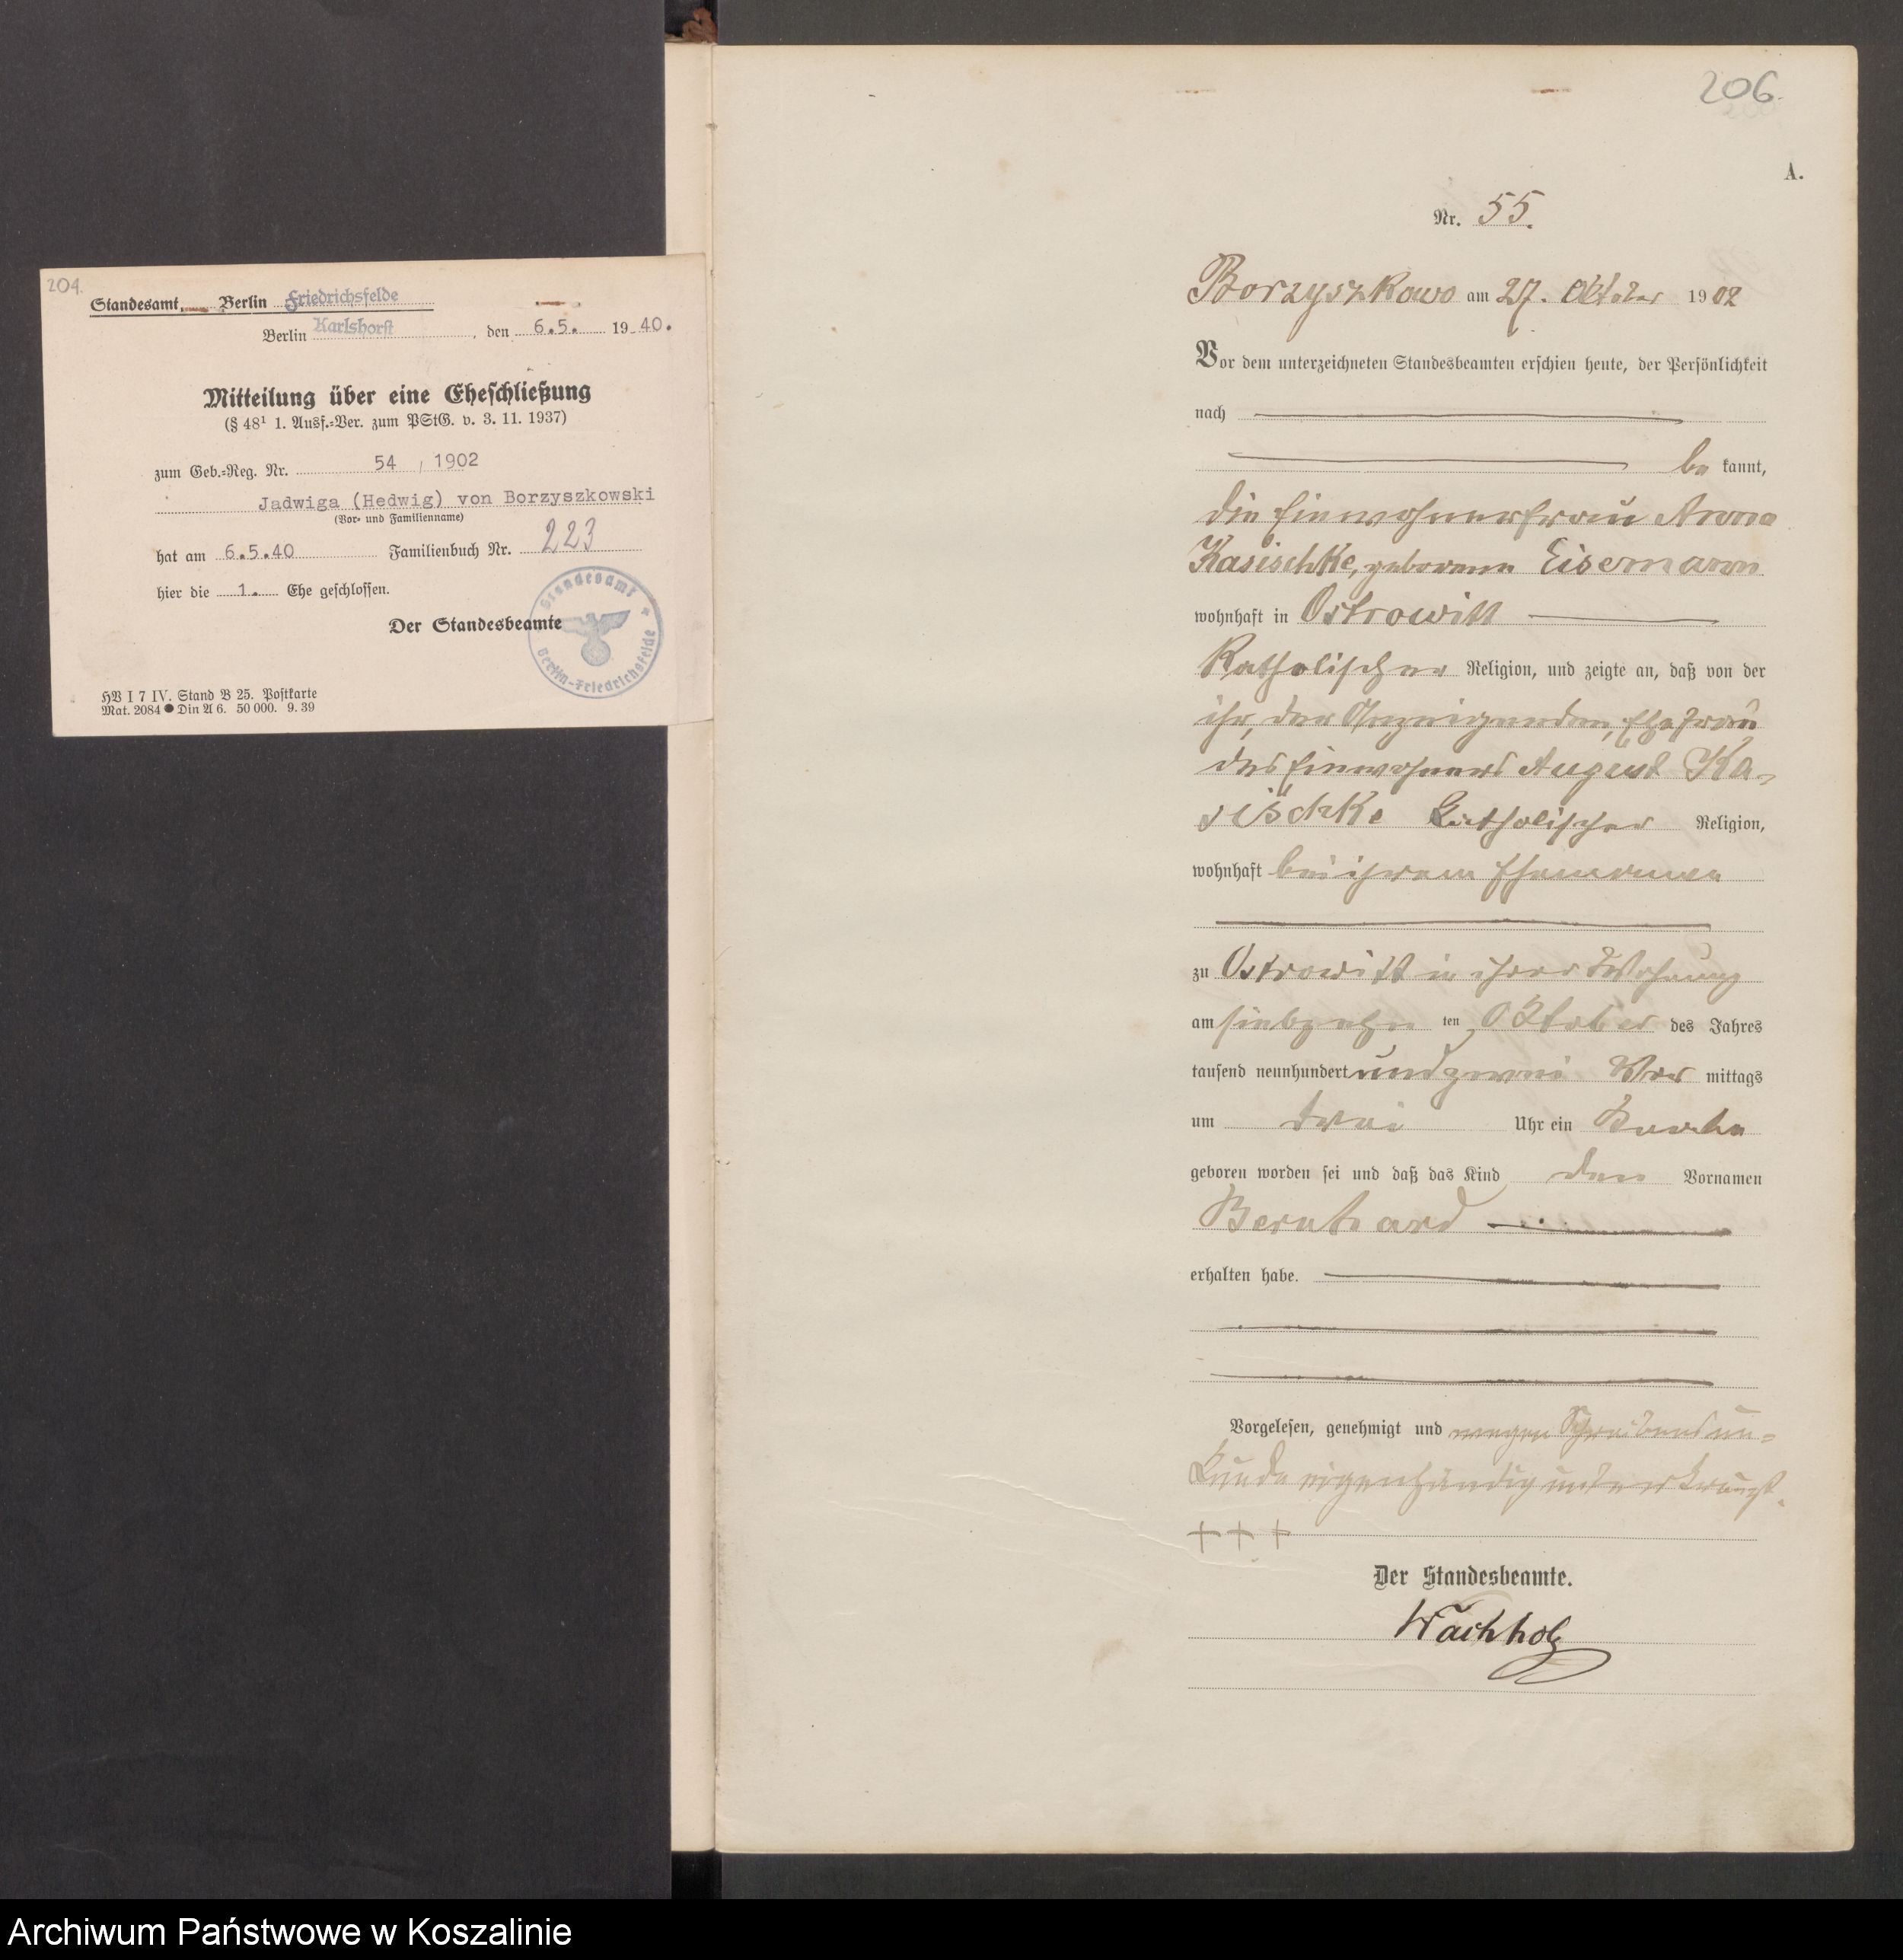 204.
Standesamt Berlin Friedrichsfelde
Berlin Karlshorst, den 6.5. 1940.
Mitteilung über eine Eheschließung
(§ 48¹ 1. Ausf.=Ver. zum PStG. v. 3. 11. 1937)
zum Geb.=Reg. Nr. 54 / 1902
Jadwiga (Hedwig) von Borzyszkowski
(Vor- und Familienname)
hat am 6.5.40 Familienbuch Nr. 223
hier die 1. Ehe geschlossen.
Der Standesbeamte
Standesamt
Berlin-Friedrichsfelde
HB I 7 IV. Stand B 25. Postkarte
Mat. 2084 ● Din A 6. 50 000. 9. 39
206.
A.
Nr. 55.
Borzyszkowo am 27. Oktober 1902
Vor dem unterzeichneten Standesbeamten erschien heute, der Persönlichkeit
nach
be kannt,
die Einwohnerfrau Anna
Kasischke, geborene Eisemann
wohnhaft in Ostrowitt
katholischer Religion, und zeigte an, daß von der
ihr, der Anzeigenden, Ehefrau
des Einwohners August Ka-
sischke katholischer Religion,
wohnhaft bei ihrem Ehemanne
zu Ostrowitt in ihrer Wohnung
am siebzehn ten Oktober des Jahres
tausend neunhundert und zwei Vor mittags
um drei Uhr ein Knabe
geboren worden sei und daß das Kind den Vornamen
Bernhard
erhalten habe.
Vorgelesen, genehmigt und wegen Schreibensun=
kunde eigenhändig unterkreuzt.
+ + +
Der Standesbeamte.
Wachholz
Archiwum Państwowe w Koszalinie